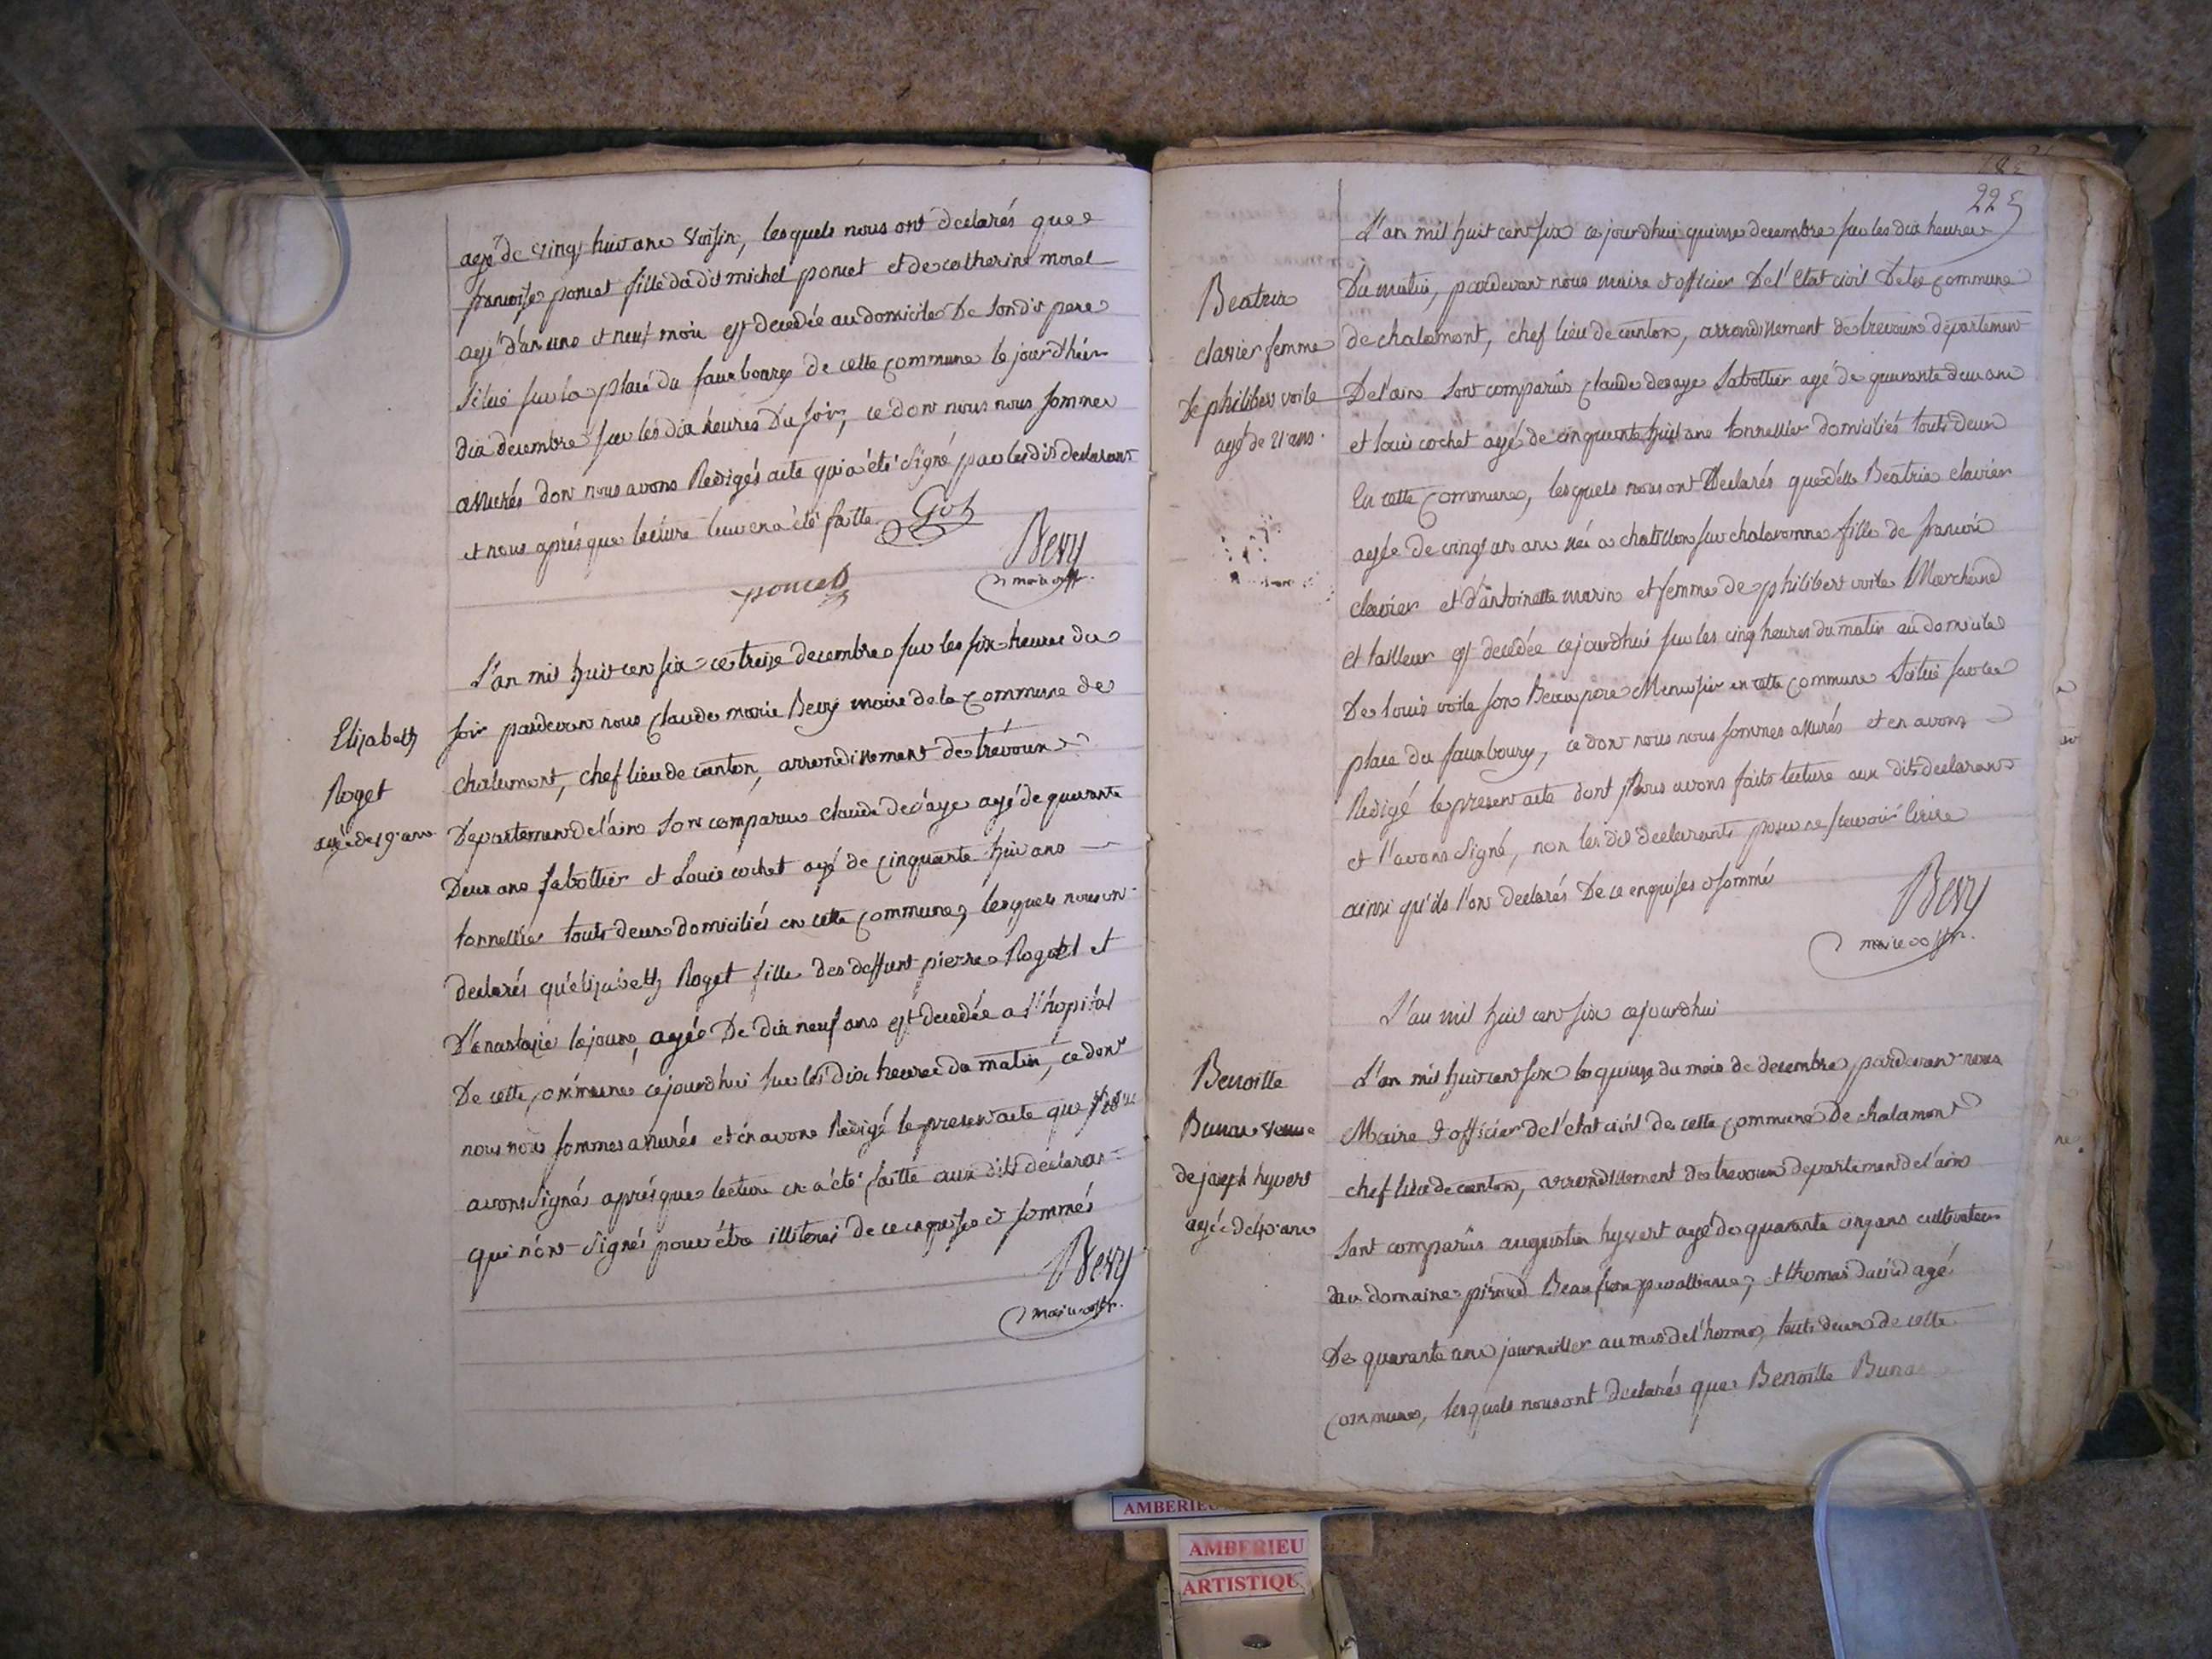 agé de vingt huit ans voisin, lesquels nous ont declarés que
françoise poncet fille du dit michel poncet et de catherine morel
agé d'un ans et neuf mois est decedée au domicile De son dit pere
situé sur la place du fauxbourg de cette commune le jour d'hier
dix decembre sur les dix heures Du soir, ce dont nous nous sommes
assurés dont nous avons Redigés acte qui a été signé par les dits declarants
et nous après que lecture leur en a été faitte Goh
Bevy
poncet
maire offr.
L'an mil huit cent six ce treize decembre sur les six heures du
soir pardevant nous Claude marie Bevy maire de la commune de
Elizabeth
chalamont, chef lieu de canton, arrondissement de trévoux
Roget
Departement de l'ain sont comparus claude de aye agé de quarante
agé de 19 ans
Deux ans sabottier et Louis cochet agé de cinquante huit ans
tonnellier touts deux domiciliés en cette commune, lesquels nous ont
declarés qu'elizabeth Roget fille des deffunt pierre Roget et
D'anastazie lejour, agée De dix neuf ans est decedée a l'hopital
De cette commune cejourdhui sur les dix heures du matin, ce dont
nous nous sommes assurés et en avons Redigé le present acte que nous
avons signés après que lecture en a été faitte aux dits déclarans
qui n'ont signés pour étre illiterés de ce enquises et sommés
Bevy
maire offr.
225
L'an mil huit cent six ce jourdhui quinze decembre sur les dix heures
Du matin, pardevant nous maire et officier De l'etat civil De la commune
Beatrix
clavier femme
de chalamont, chef lieu de canton, arrondissement de trevoux département
De philibert voile
De l'ain sont comparûs claude deaye sabottier agé de quarante deux ans
agé de 21 ans.
et louis cochet agé de cinquante huit ans tonnellier domiciliés touts deux
En cette commune, lesquels nous ont Declarés que delle Beatrix clavier
agée de vingt un ans née a chatillon sur chalaronne fille de françois
clavier et d'antoinette marin et femme de philibert voile Marchand
et tailleur est decedée cejourdhui sur les cinq heures du matin au domicile
De louis voile son Beau pere Menuisier en cette commune Situé sur la
place du fauxbourg, ce dont nous nous sommes assurés et en avons
Redigé le present acte dont Nous avons faits lecture aux dits declarans
et l'avons signé, non les dits declarants pour ne scavoir lirire
ainsi qu'ils l'ont declarés De ce enquises et sommé
Bevy
maire offr.
L'an mil huit cent six cejourdhui
Benoitte
L'an mil huit cent six le quinze du mois de decembre pardevant nous
Bunau veuve
Maire et officier de l'etat civil de cette commune De chalamont
de joseph hyvert
chef lieu de canton, arrondissement de trevoux departement de l'ain
agée de 40 ans
sont comparûs augustin hyvert agé de quarante cinq ans cultivateur
au domaine piroud Beau frere par alliance, et thomas david agé
De quarante ans journallier au mas de l'horme, touts deux de cette
commune, lesquels nous ont declarés que Benoitte Bunau
AMBERIEU
AMBERIEU
ARTISTIQU